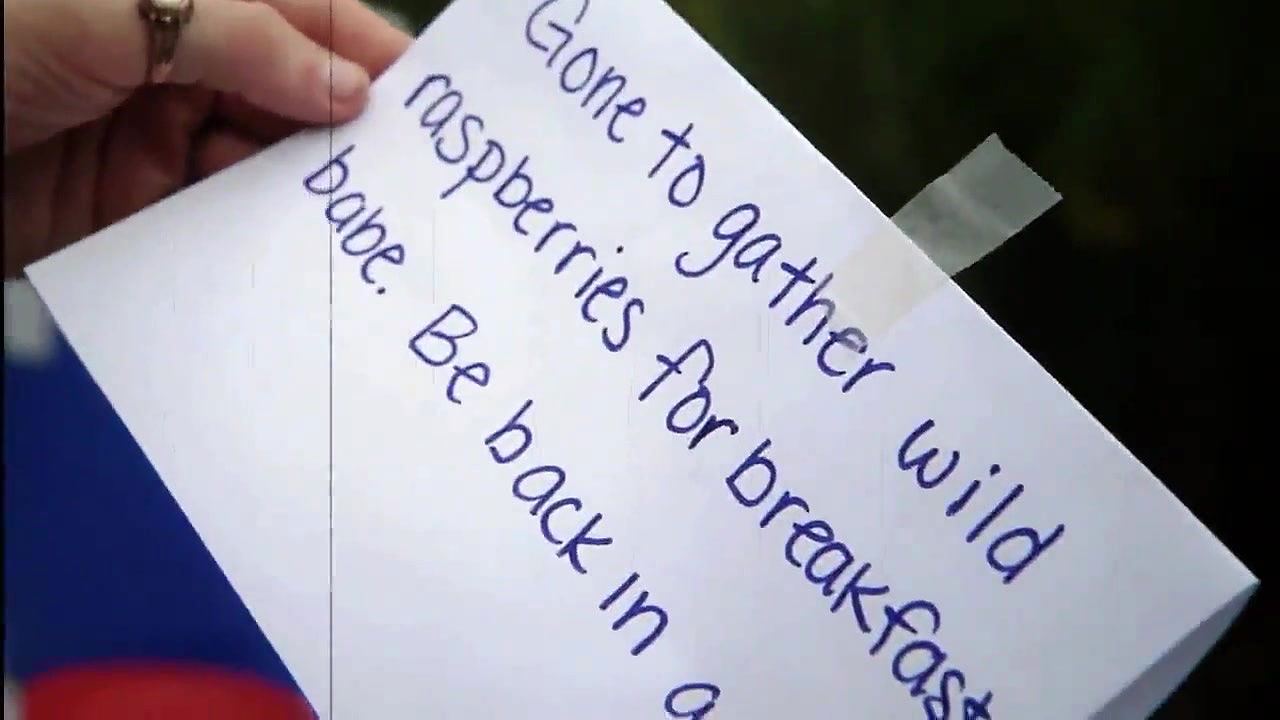 Gone to gather wild
raspberries for breakfast
babe. Be back in a